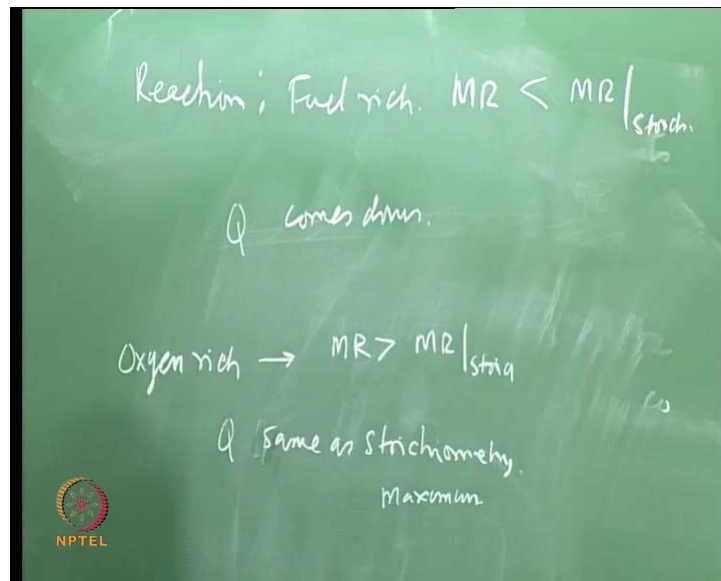 Reaction: Fuel rich. MR < MR|stoich.
Q comes down.
Oxygen rich → MR > MR|stoiq
Q same as Stoichiometry.
Maximum
NPTEL